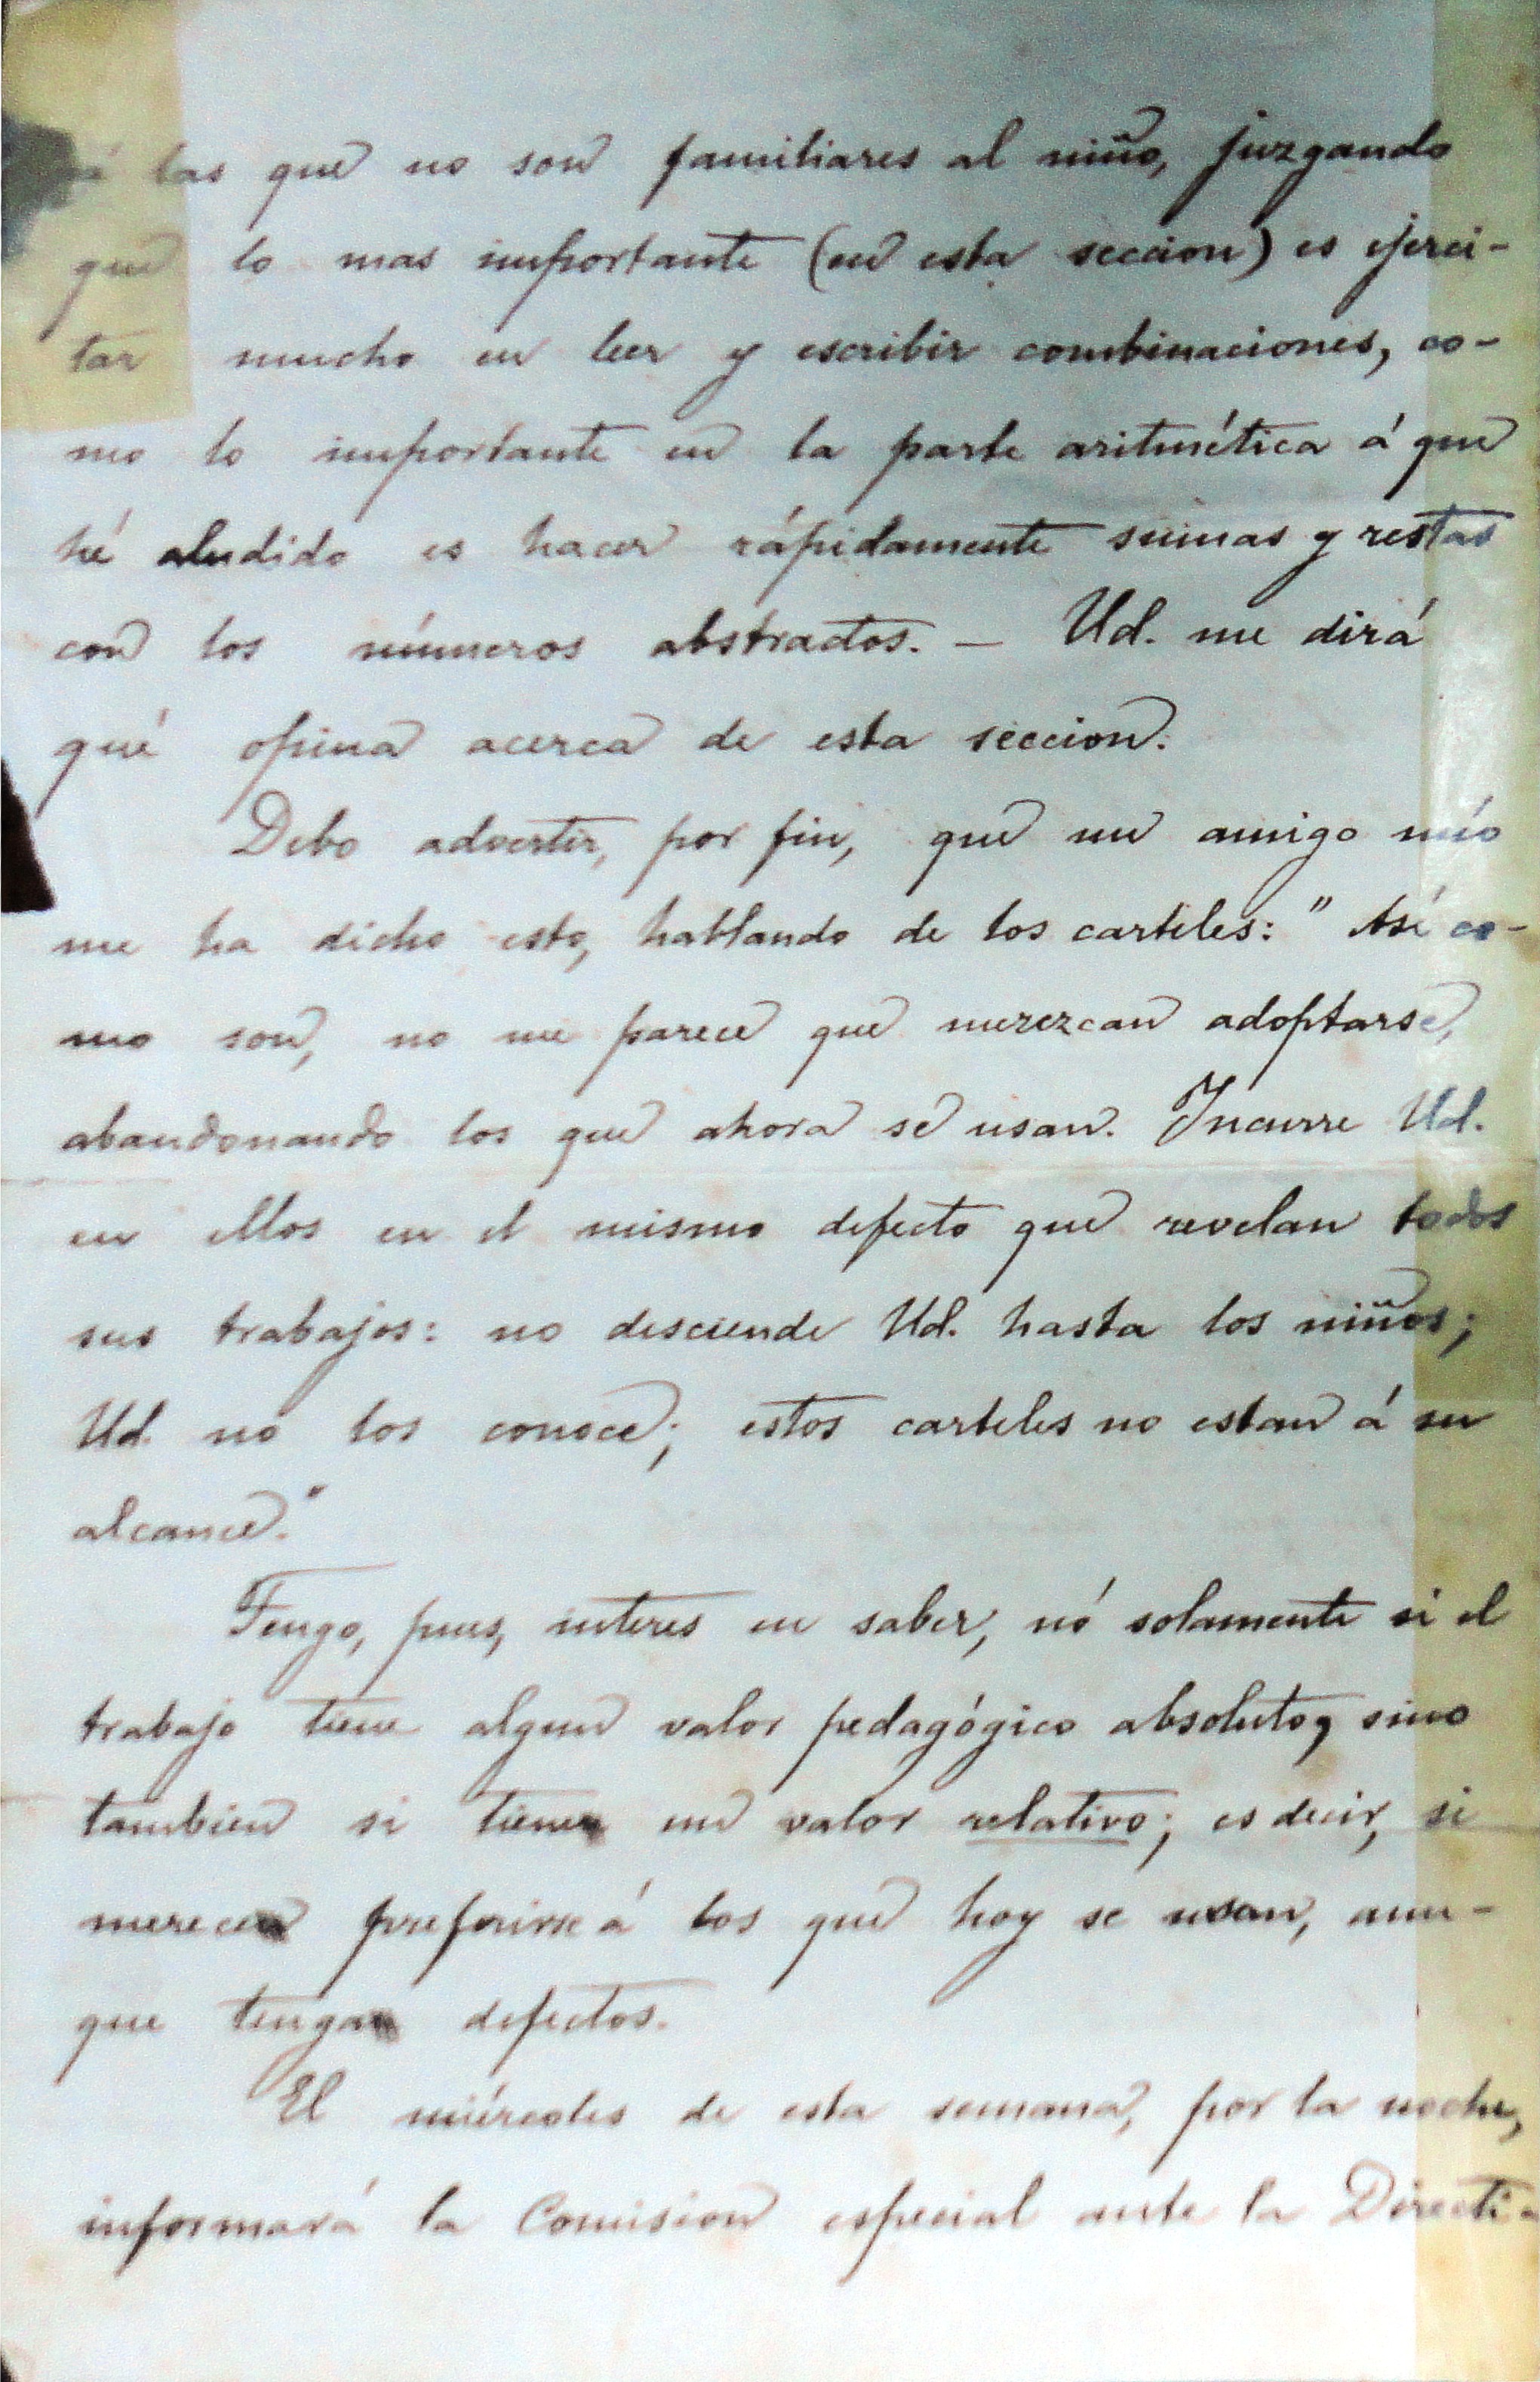 á las que no son familiares al niño, juzgando
que lo mas importante (en esta seccion) es ejerci-
tar mucho en leer y escribir combinaciones, co-
mo lo importante en la parte aritmética á que
hé aludido es hacer rápidamente sumas y restas
con los números abstractos. — Ud. me dirá
qué opina acerca de esta seccion.
Debo advertir, por fin, que un amigo mío
me ha dicho esto, hablando de los carteles: "Así co-
mo son, no me parece que merezcan adoptarse,
abandonando los que ahora se usan. Incurre Ud.
en ellos en el mismo defecto que revelan todos
sus trabajos: no desciende Ud. hasta los niños;
Ud. no los conoce; estos carteles no estan á su
alcance."
Tengo, pues, interes en saber, nó solamente si el
trabajo tiene algun valor pedagógico absoluto, sino
tambien si tiene un valor relativo; es decir, si
merece preferirse á los que hoy se usan, aun-
que tenga defectos.
El miércoles de esta semana, por la noche,
informará la Comision especial ante la Directi-